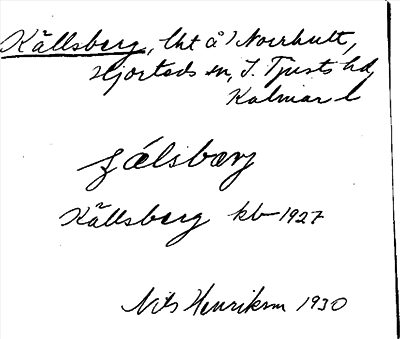 Källsberg, lht å) Norrhult,
Hjorteds sn, S. Tjusts hd,
Kalmar l
Källsberg kb 1927
Nils Henrikson 1930